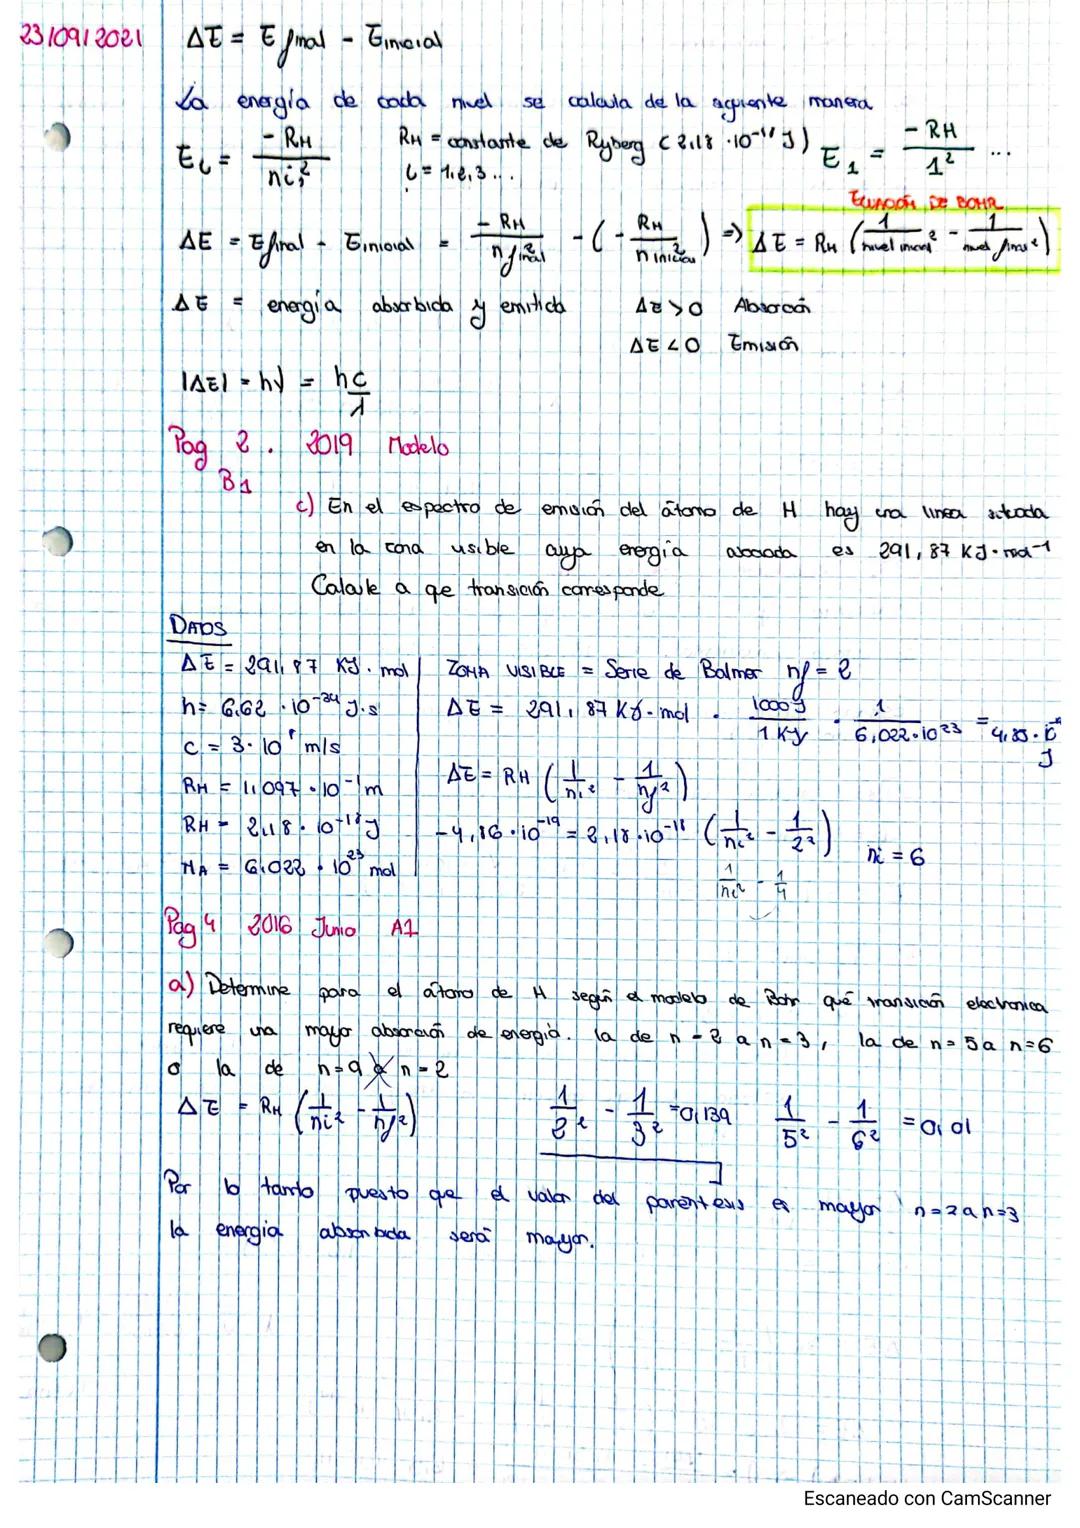 23/09/2021 ΔE = E final - E inicial
La energía de cada nivel se calcula de la siguiente manera
Ei = -RH / ni² RH = constante de Ryberg (2,18 · 10⁻¹⁸ J) E₁ = -RH / 1² ...
i = 1,2,3...
ECUACIÓN DE BOHR
ΔE = E final - E inicial = -RH / n final² - (- RH / n inicial²) => ΔE = RH (1 / nivel inicial² - 1 / nivel final²)
ΔE = energía absorbida y emitida ΔE > 0 Absorción
ΔE < 0 Emisión
|ΔE| = hν = hc / λ
Pag 2. 2019 Modelo
B1
c) En el espectro de emisión del átomo de H hay una linea situada
en la zona visible cuya energía asociada es 291,87 KJ · mol⁻¹
Calcule a qe transición corresponde
DATOS
ΔE = 291,87 KJ · mol ZONA VISIBLE = Serie de Balmer nf = 2
h = 6,62 · 10⁻³⁴ J·s ΔE = 291,87 KJ · mol · 1000 J / 1 KJ · 1 / 6,022 · 10²³ = 4,85 · 10⁻¹⁹ J
c = 3 · 10⁸ m/s
RH = 1,097 · 10⁻¹ m ΔE = RH (1 / ni² - 1 / nf²)
RH = 2,18 · 10⁻¹⁸ J -4,86 · 10⁻¹⁹ = 2,18 · 10⁻¹⁸ (1 / ni² - 1 / 2²) ni = 6
NA = 6,022 · 10²³ mol 1 / ni² - 1 / 4
Pag 4 2016 Junio A1
a) Determine para el átomo de H según el modelo de Bohr qué transición electronica
requiere una mayor absorción de energía. la de n = 2 a n = 3, la de n = 5 a n = 6
o la de n = 9 a n = 2
ΔE = RH (1 / ni² - 1 / nf²) 1 / 2² - 1 / 3² = 0,139 1 / 5² - 1 / 6² = 0,01
Por lo tanto puesto que el valor del parentesis es mayor n = 2 a n = 3
la energia absorbida será mayor.
Escaneado con CamScanner